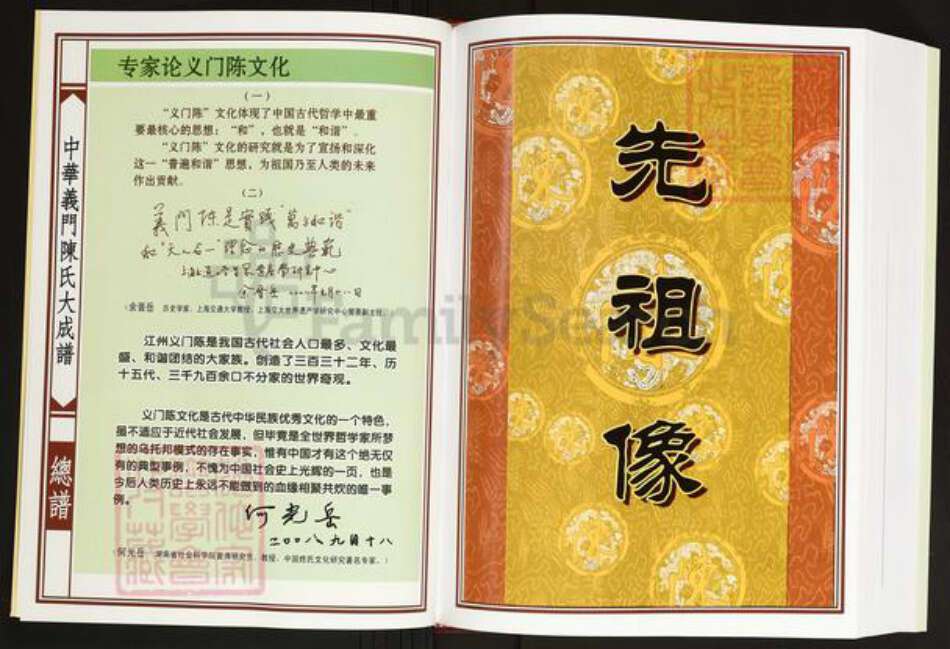 中華義門陳氏大成譜
總譜
专家论义门陈文化
(一)
“义门陈”文化体现了中国古代哲学中最重
要最核心的思想：“和”，也就是“和谐”。
“义门陈”文化的研究就是为了宣扬和深化
这一“普遍和谐”思想，为祖国乃至人类的未来
作出贡献。
(二)
義门陈是實践
(余晋岳 历史学家、上海交通大学教授，上海交大世界遗产学研究中心常务副主任。)
江州义门陈是我国古代社会人口最多、文化最
盛、和谐团结的大家族。创造了三百三十二年、历
十五代、三千九百余口不分家的世界奇观。
义门陈文化是古代中华民族优秀文化的一个特色，
虽不适应于近代社会发展，但毕竟是全世界哲学家所梦
想的乌托邦模式的存在事实，惟有中国才有这个绝无仅
有的典型事例，不愧为中国社会史上光辉的一页，也是
今后人类历史上永远不能做到的血缘相聚共炊的唯一事
例。
何光岳
二〇〇八九月十八
(何光岳 湖南省社会科学院首席研究员、教授，中国姓氏文化研究著名专家。)
先祖像
FamilySearch